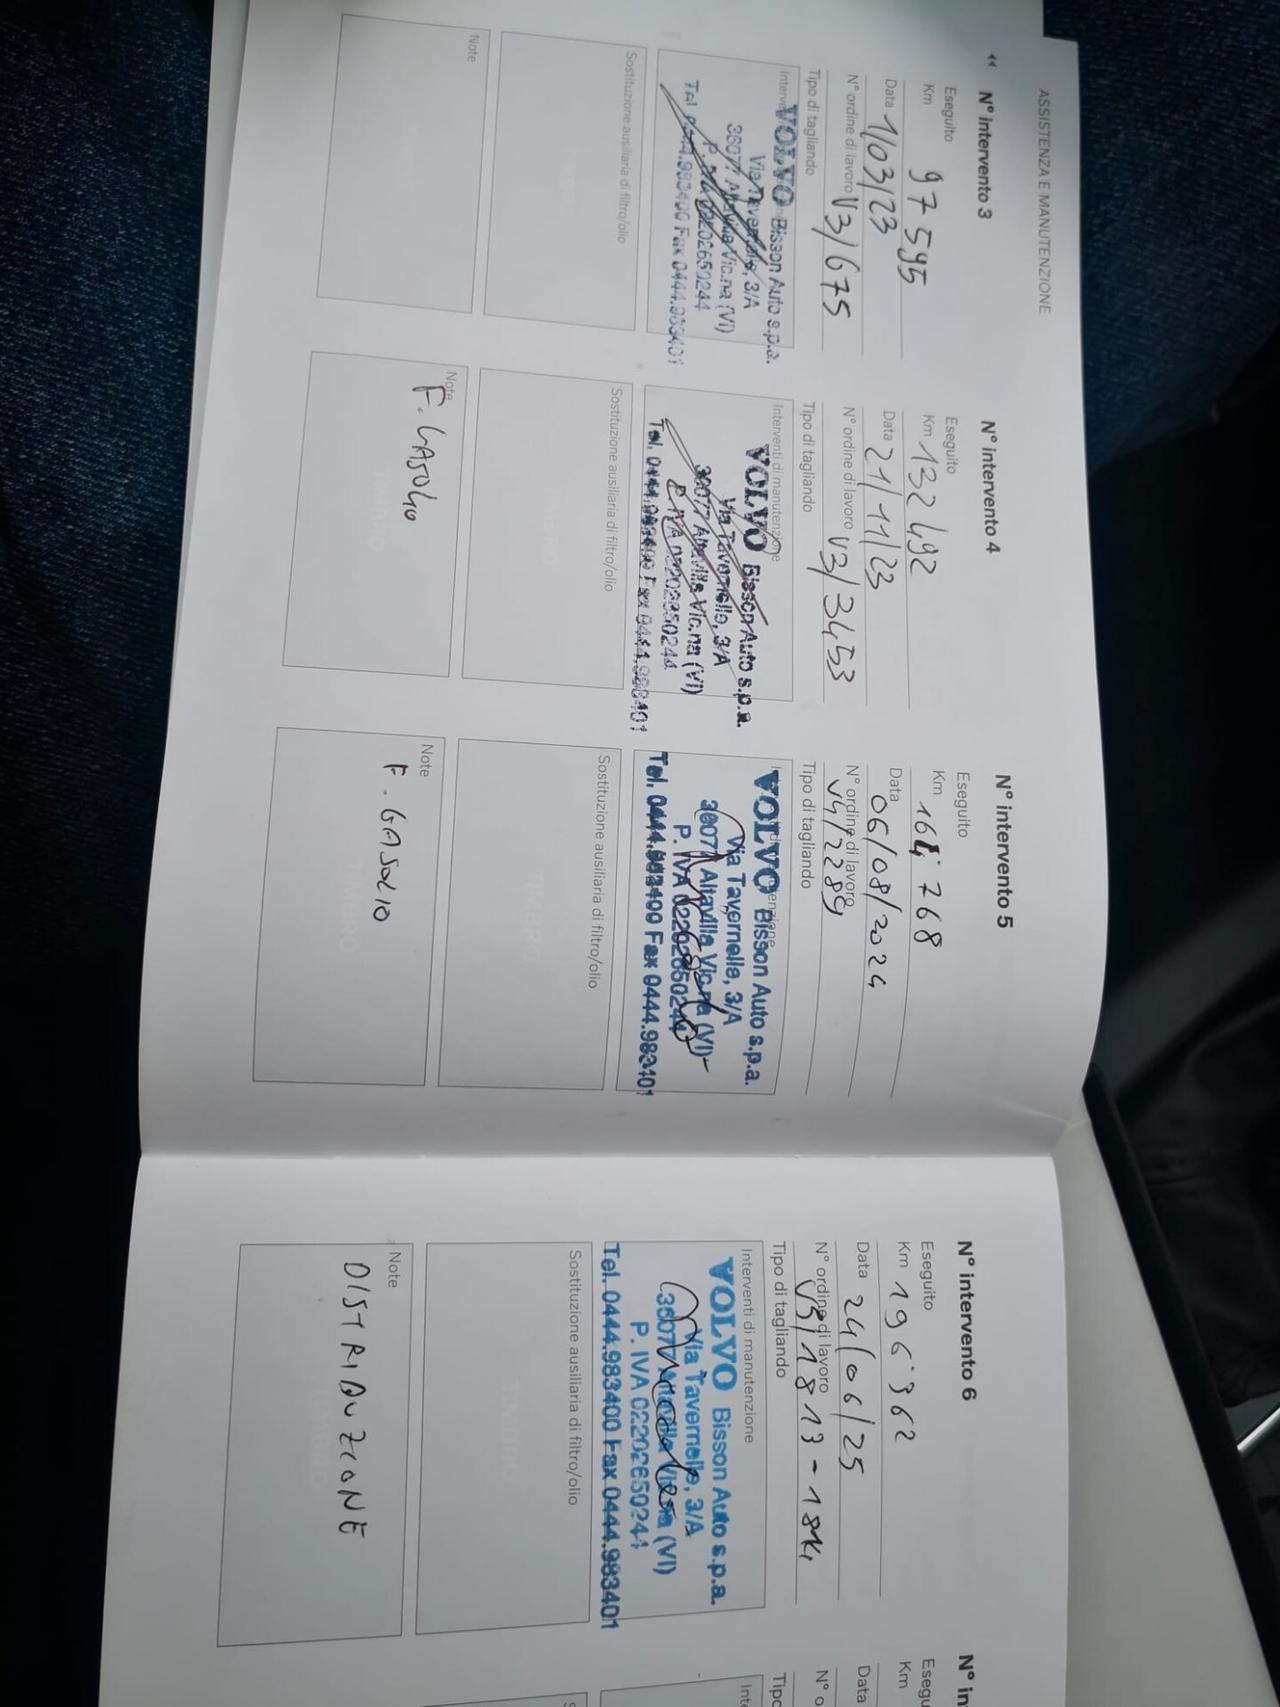 ASSISTENZA E MANUTENZIONE
N° intervento 3
Eseguito
Km 97 595
Data 1/03/23
N° ordine di lavoro V3/675
Tipo di tagliando
VOLVO Bisson Auto s.p.a.
Via Tavernelle, 3/A
36077 Altavilla Vic.na (VI)
P. IVA 02202650244
Tel. 0444.983400 Fax 0444.983401
Sostituzione ausiliaria di filtro/olio
Note
N° intervento 4
Eseguito
Km 132 492
Data 21/11/23
N° ordine di lavoro V3/3453
Tipo di tagliando
Interventi di manutenzione
VOLVO Bisson Auto s.p.a.
Via Tavernelle, 3/A
36077 Altavilla Vic.na (VI)
P. IVA 02202650244
Tel. 0444.983400 Fax 0444.983401
Sostituzione ausiliaria di filtro/olio
Note
F. GASOLIO
N° intervento 5
Eseguito
Km 164 768
Data 06/08/2024
N° ordine di lavoro
V4/2284
Tipo di tagliando
VOLVO Bisson Auto s.p.a.
Via Tavernelle, 3/A
36077 Altavilla Vic.na (VI)
P. IVA 02202650244
Tel. 0444.983400 Fax 0444.983401
Sostituzione ausiliaria di filtro/olio
TIMBRO
Note
F. GASOLIO
TIMBRO
N° intervento 6
Eseguito
Km 196362
Data 24/06/25
N° ordine di lavoro
V5/1813-1814
Tipo di tagliando
Interventi di manutenzione
VOLVO Bisson Auto s.p.a.
Via Tavernelle, 3/A
36077 Altavilla Vic.na (VI)
P. IVA 02202650244
Tel. 0444.983400 Fax 0444.983401
Sostituzione ausiliaria di filtro/olio
TIMBRO
Note
DISTRIBUZIONE
N° in
Esegu
Km
Data
N° o
Tipo
Inte